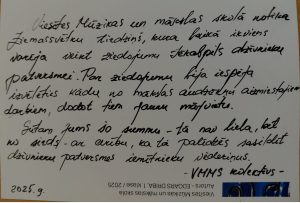 Viesītes Mūzikas un mākslas skolā notika
Ziemassvētku tirdziņš, kura laikā ikviens
varēja veikt ziedojumu Jēkabpils dzīvnieku
patversmei. Par ziedojumu bija iespēja
izvēlēties kādu no mākslas audzēkņu
darbiem, dodot tiem jaunu mājvietu.
Sūtam jums šo summu - tā nav liela, bet
no sirds - ar cerību, ka tā palīdzēs sasildīt
dzīvnieku patversmes iemītnieku vēderiņus.
- VMMS kolektīvs -
2025.g.
Viesītes Mūzikas un mākslas skola
Autors: EDGARS 
klase / 2025